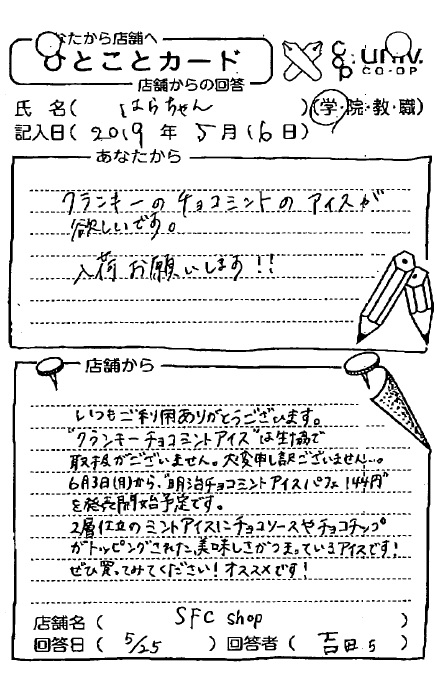 あなたから店舗へ
ひとことカード
店舗からの回答
UNIV.
CO-OP
氏 名( はらちゃん )(学・院・教・職)
記入日( 2019 年 5月 16日)
あなたから
クランキーの チョコミントの アイスが
欲しいです。
入荷 お願いします!!
店舗から
いつもご利用ありがとうございます。
"クランキーチョコミントアイス"は生協で
取扱がございません。大変申し訳ございません…。
6月3日(月)から、"明治チョコミントアイスパフェ 144円"
を発売開始予定です。
2層仕立のミントアイスにチョコソースやチョコチップ
がトッピングされた、美味しさがつまっているアイスです!
ぜひ買ってみてください!オススメです!
店舗名( SFC shop )
回答日( 5/25 ) 回答者( 吉田 )